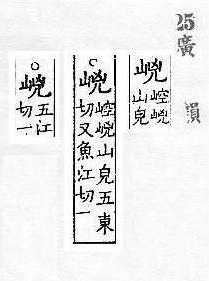 25廣韻
㟅
崆㟅
山皃
㟅
崆㟅山皃五東
切又魚江切一
㟅
五江
切一